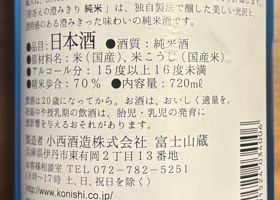 「昔冴えの澄みきり 純米」は、独自製法で醸した美しい光沢と、
透明感のある澄みきった味わいの純米酒です。
●品目:日本酒 ●酒質:純米酒
●原材料名:米(国産)、米こうじ(国産米)
●アルコール分:15度以上16度未満
●精米歩合:70% ●内容量:720mℓ
飲酒は20歳になってから。お酒は、おいしく適量を。
妊娠中や授乳期の飲酒は、胎児・乳児の発育に
影響を与えるおそれがあります。
製造者 小西酒造株式会社 富士山蔵
兵庫県伊丹市東有岡2丁目13番地
お客様相談室 TEL 072-782-5251
(9時〜17時 土、日、祝日を除く)
http://www.konishi.co.jp/